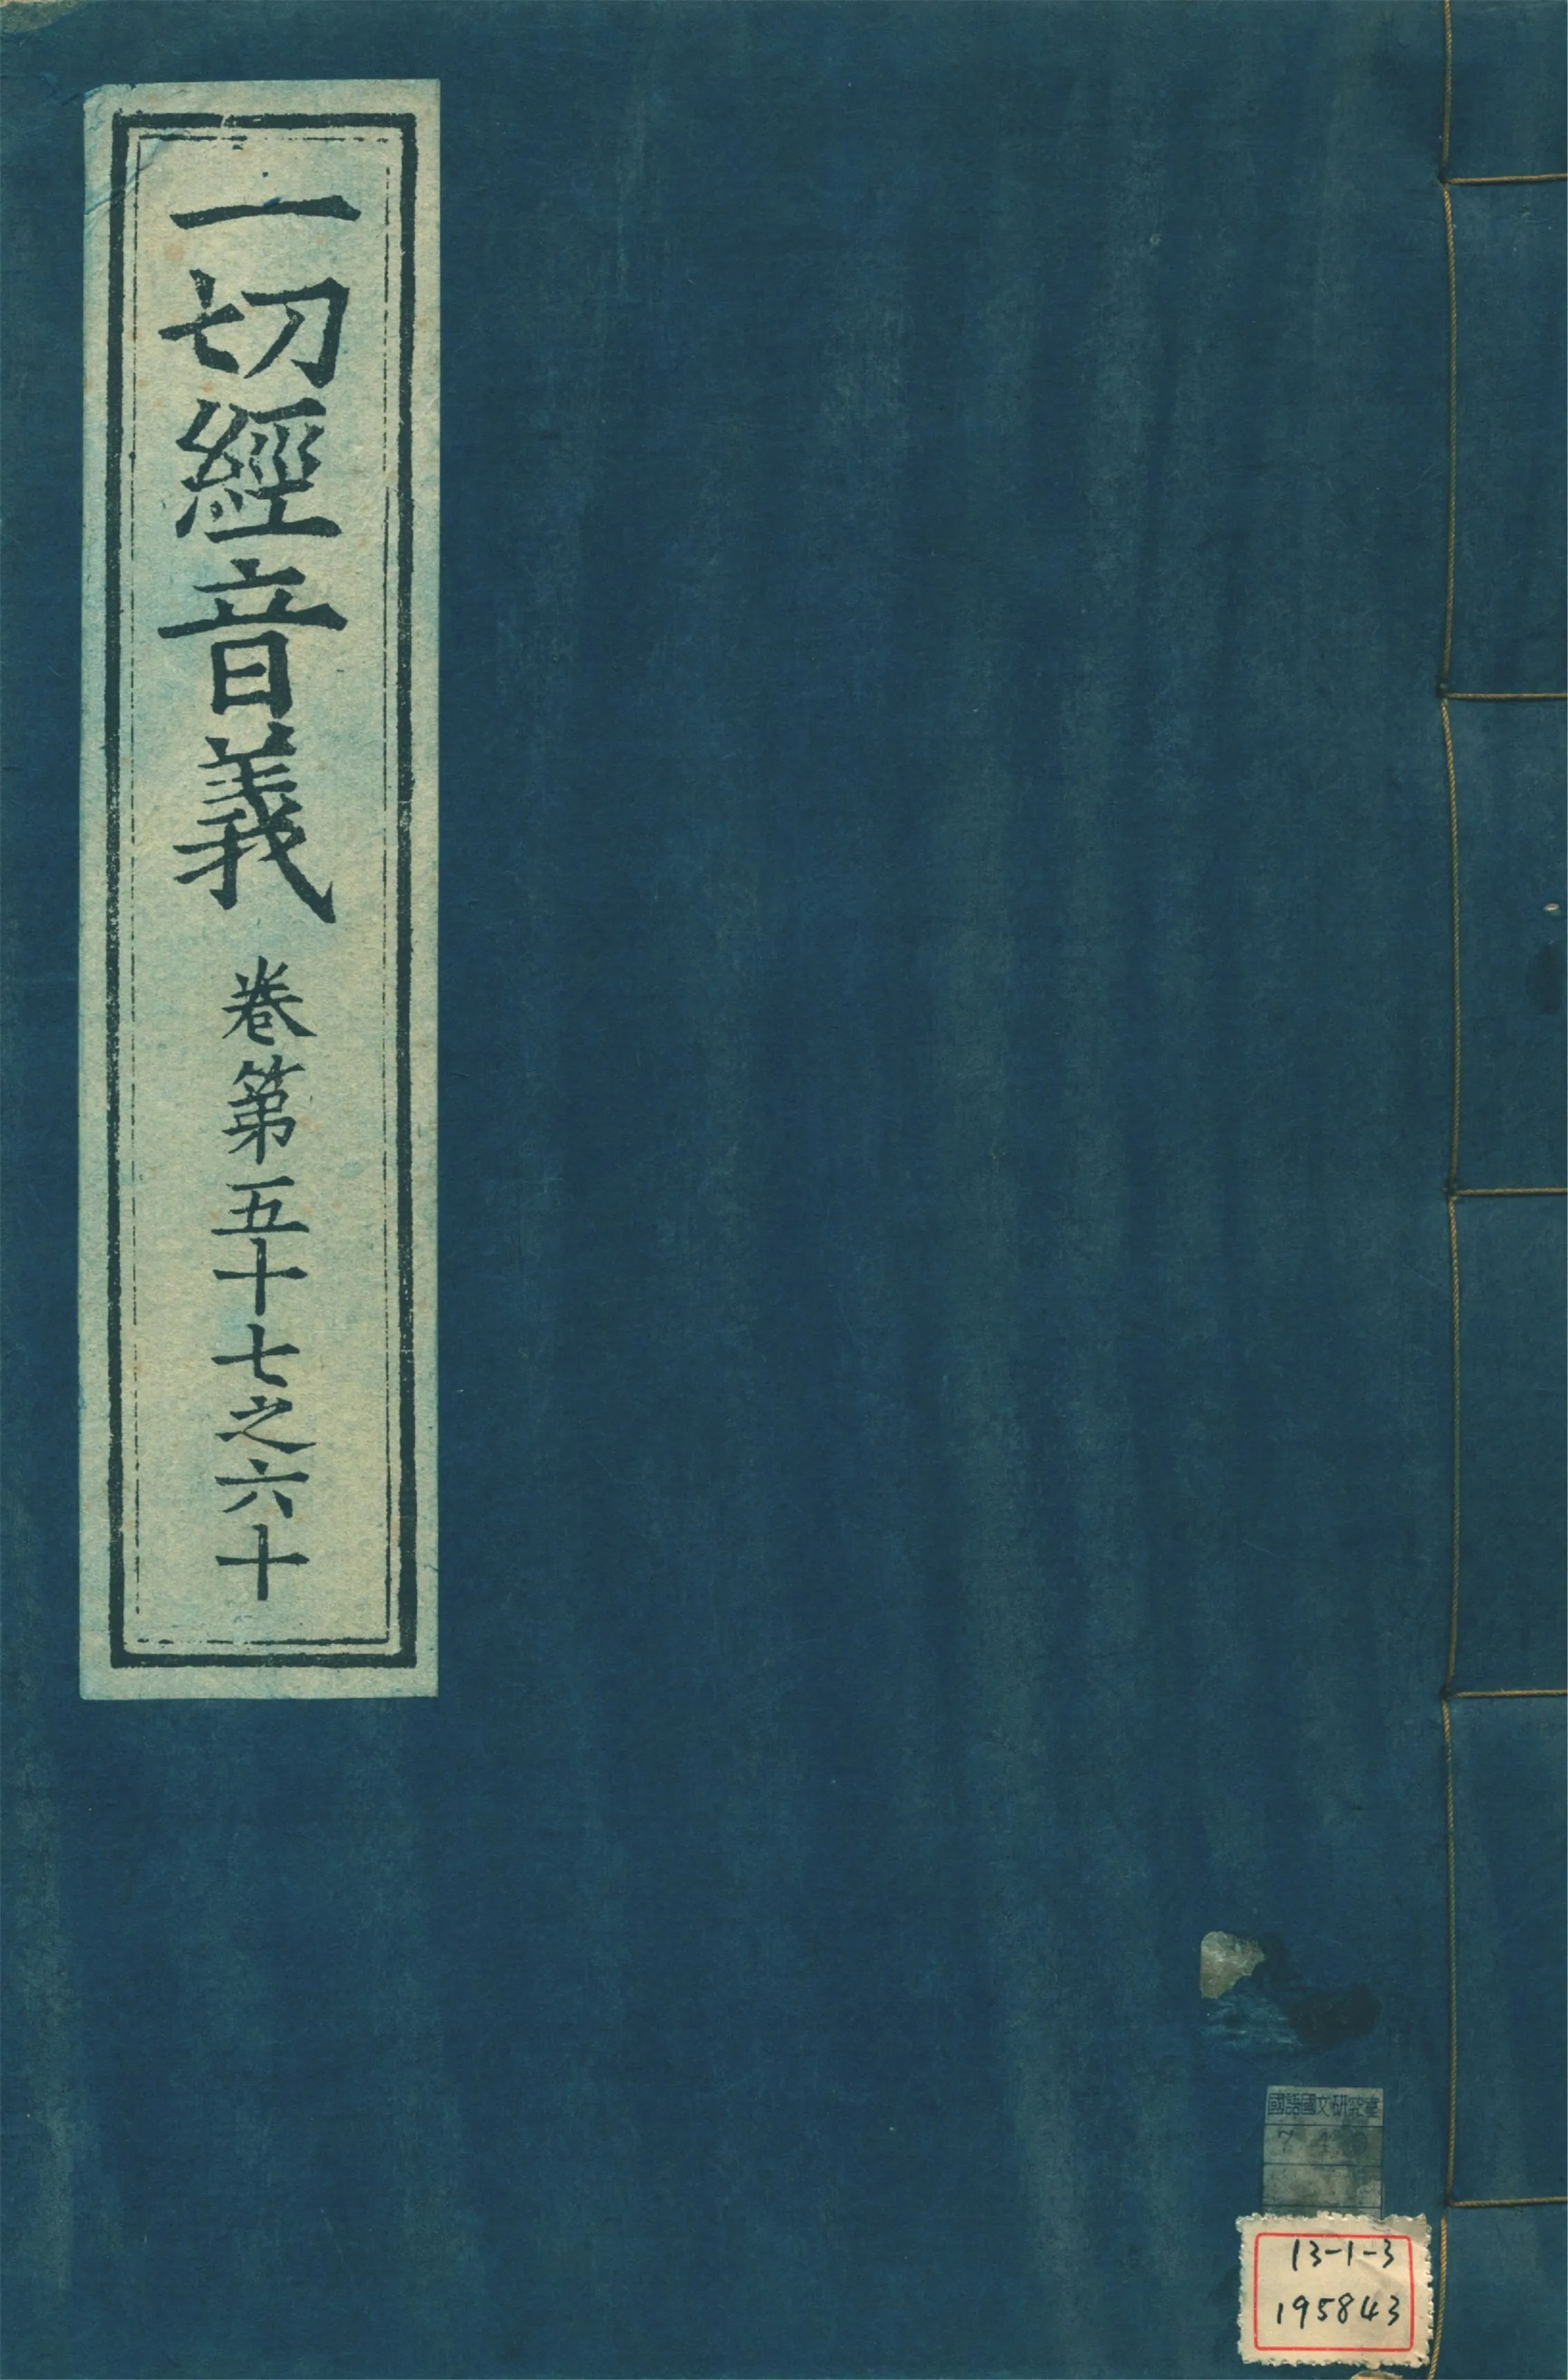 一切經音義 卷第五十七之六十
國語國文研究室
13-1-3
195843